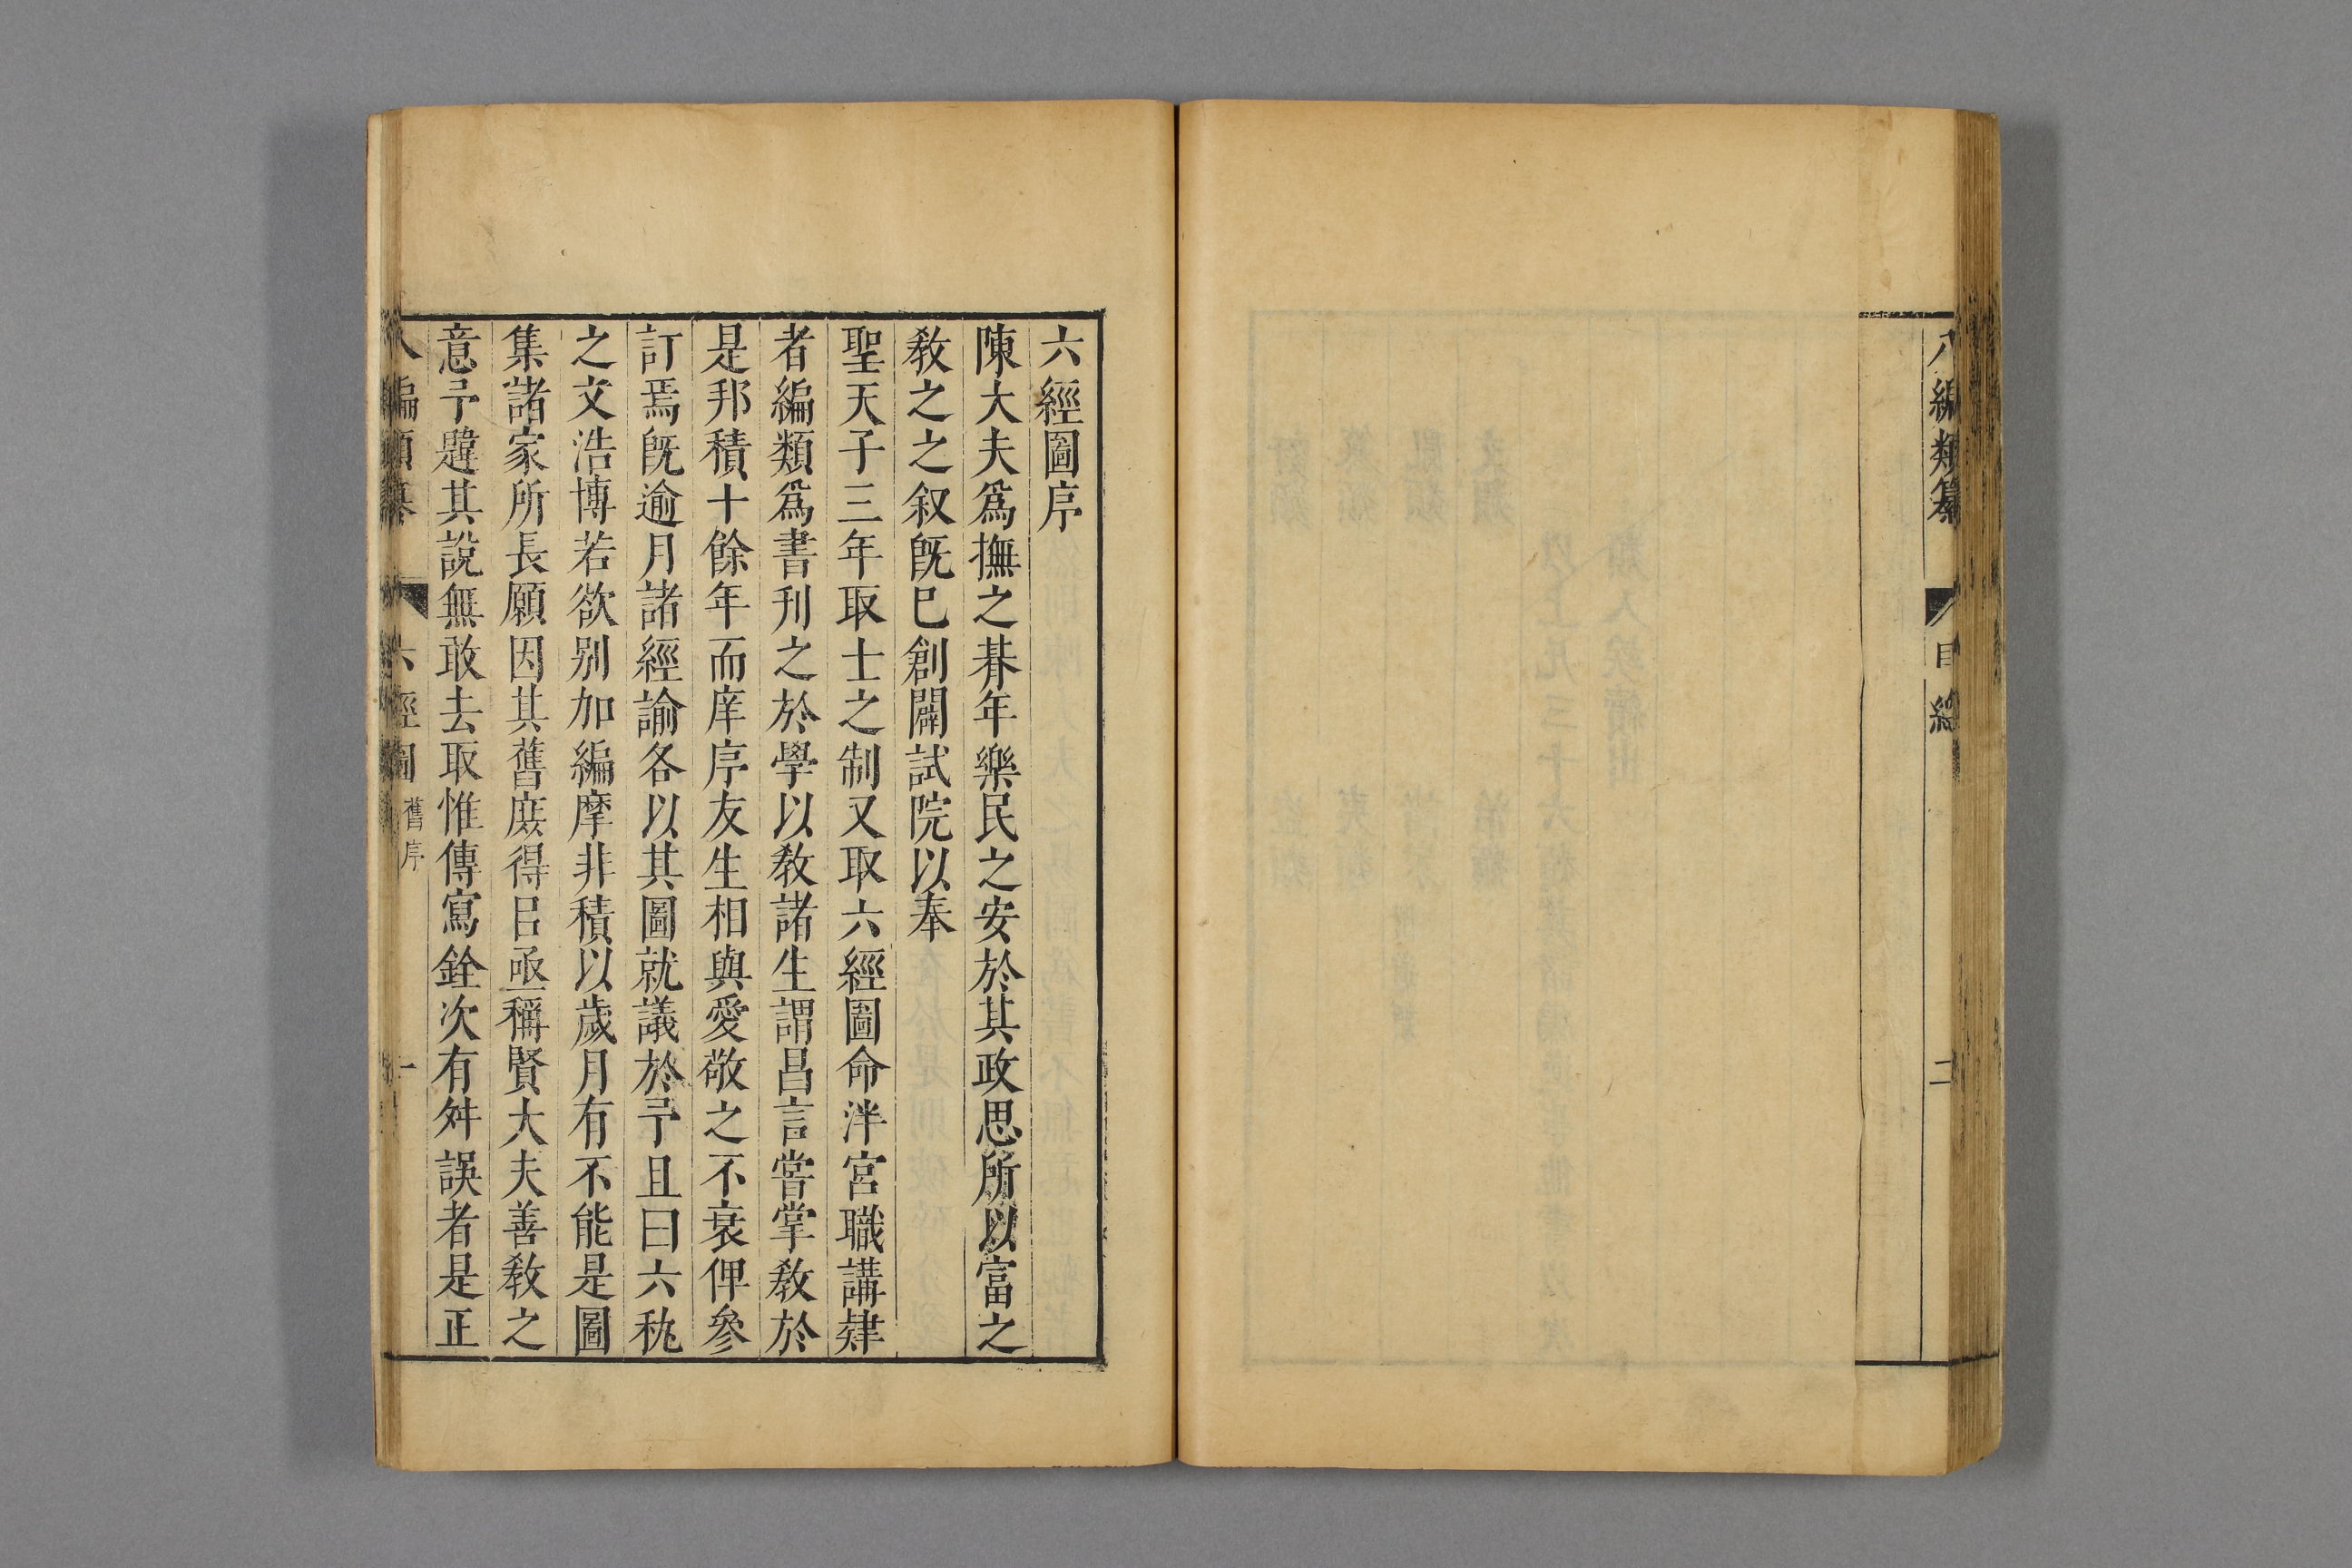 八編類纂 目總 二
六經圖序
陳大夫爲撫之朞年樂民之安於其政思所以富之
敎之之叙旣巳創闢試院以奉
聖天子三年取士之制又取六經圖命泮宮職講肄
者編類爲書刊之於學以敎諸生謂昌言嘗掌敎於
是邦積十餘年而庠序友生相與愛敬之不衰俾參
訂焉旣逾月諸經論各以其圖就議於予且曰六秇
之文浩博若欲别加編摩非積以歲月有不能是圖
集諸家所長願因其舊庶得㠯亟稱賢大夫善敎之
意予韙其說無敢去取惟傳寫銓次有舛誤者是正
八編類纂 六經圖 舊序 一